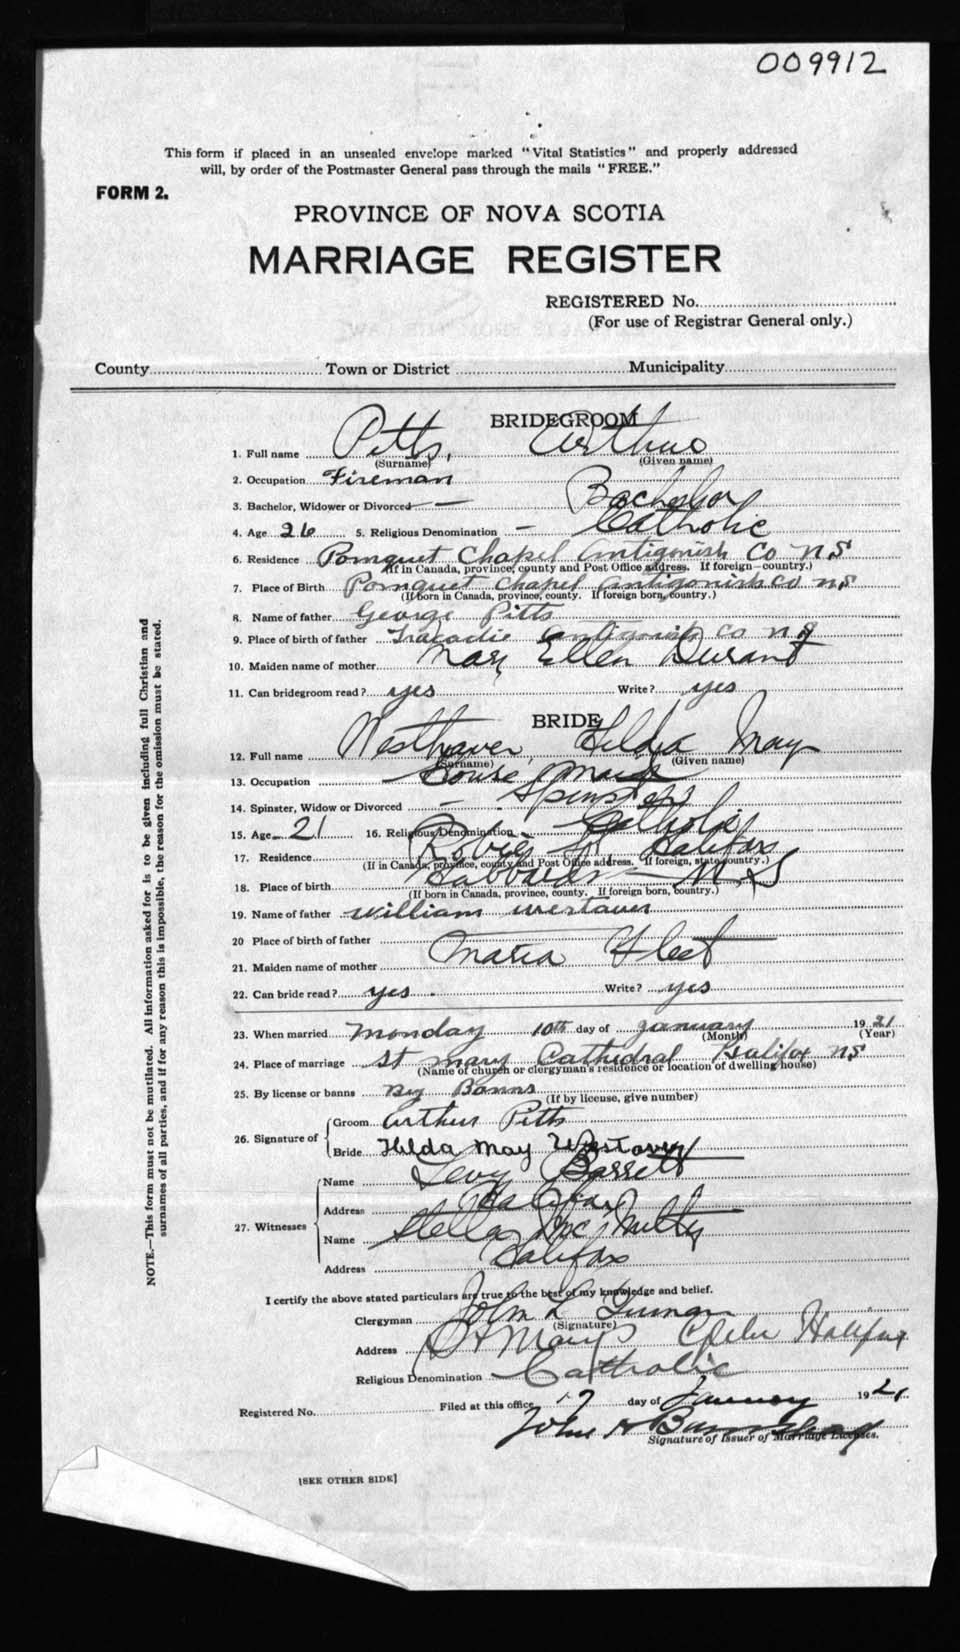 009912
This form if placed in an unsealed envelope marked "Vital Statistics" and properly addressed
will, by order of the Postmaster General pass through the mails "FREE."
FORM 2.
PROVINCE OF NOVA SCOTIA
MARRIAGE REGISTER
REGISTERED No.
(For use of Registrar General only.)
County Town or District Municipality
BRIDEGROOM
1. Full name Pitts, Arthur
(Surname) (Given name)
2. Occupation Fireman
3. Bachelor, Widower or Divorced — Bachelor
4. Age 26 5. Religious Denomination — Catholic
6. Residence Pomquet Chapel Antigonish Co NS
(If in Canada, province, county and Post Office address. If foreign—country.)
7. Place of Birth Pomquet Chapel Antigonish Co NS
(If born in Canada, province, county. If foreign born, country.)
8. Name of father George Pitts
9. Place of birth of father Tracadie Antigonish Co NS
10. Maiden name of mother Mary Ellen Durant
11. Can bridegroom read? yes Write? yes
BRIDE
12. Full name Westhaver, Hilda May
(Surname) (Given name)
13. Occupation House Maid
14. Spinster, Widow or Divorced — Spinster
15. Age 21 16. Religious Denomination Catholic
17. Residence Robie St Halifax
(If in Canada, province, county and Post Office address. If foreign, state country.)
18. Place of birth Hubbards — N.S
(If born in Canada, province, county. If foreign born, country.)
19. Name of father William Westaver
20 Place of birth of father
21. Maiden name of mother Maria
22. Can bride read? yes. Write? yes
23. When married Monday 10th day of January 1921
(Month) (Year)
24. Place of marriage St Mary Cathedral Halifax NS
(Name of church or clergyman's residence or location of dwelling house)
25. By license or banns By Banns
(If by license, give number)
26. Signature of
Groom Arthur Pitts
Bride Hilda May Westaver
27. Witnesses
Name Levy Barrett
Address Halifax
Name Stella McNulty
Address Halifax
I certify the above stated particulars are true to the best of my knowledge and belief.
Clergyman John L
(Signature)
Address St Mary's Glebe Halifax
Religious Denomination Catholic
Registered No. Filed at this office 17 day of January 1921
John A
Signature of Issuer of Marriage Licenses.
[SEE OTHER SIDE]
NOTE.—This form must not be mutilated. All information asked for is to be given including full Christian and
surnames of all parties, and if for any reason this is impossible, the reason for the omission must be stated.